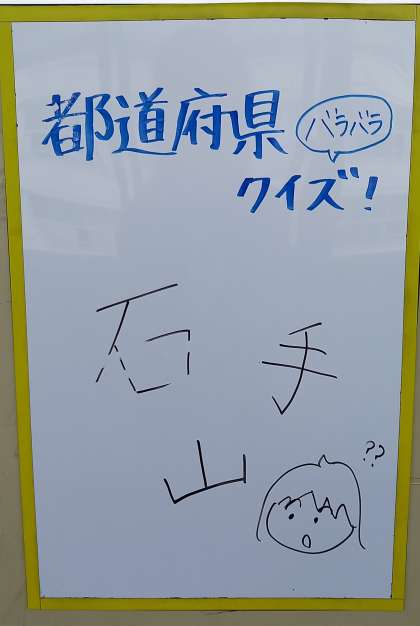 都道府県
バラバラ
クイズ!
石 手
山
??